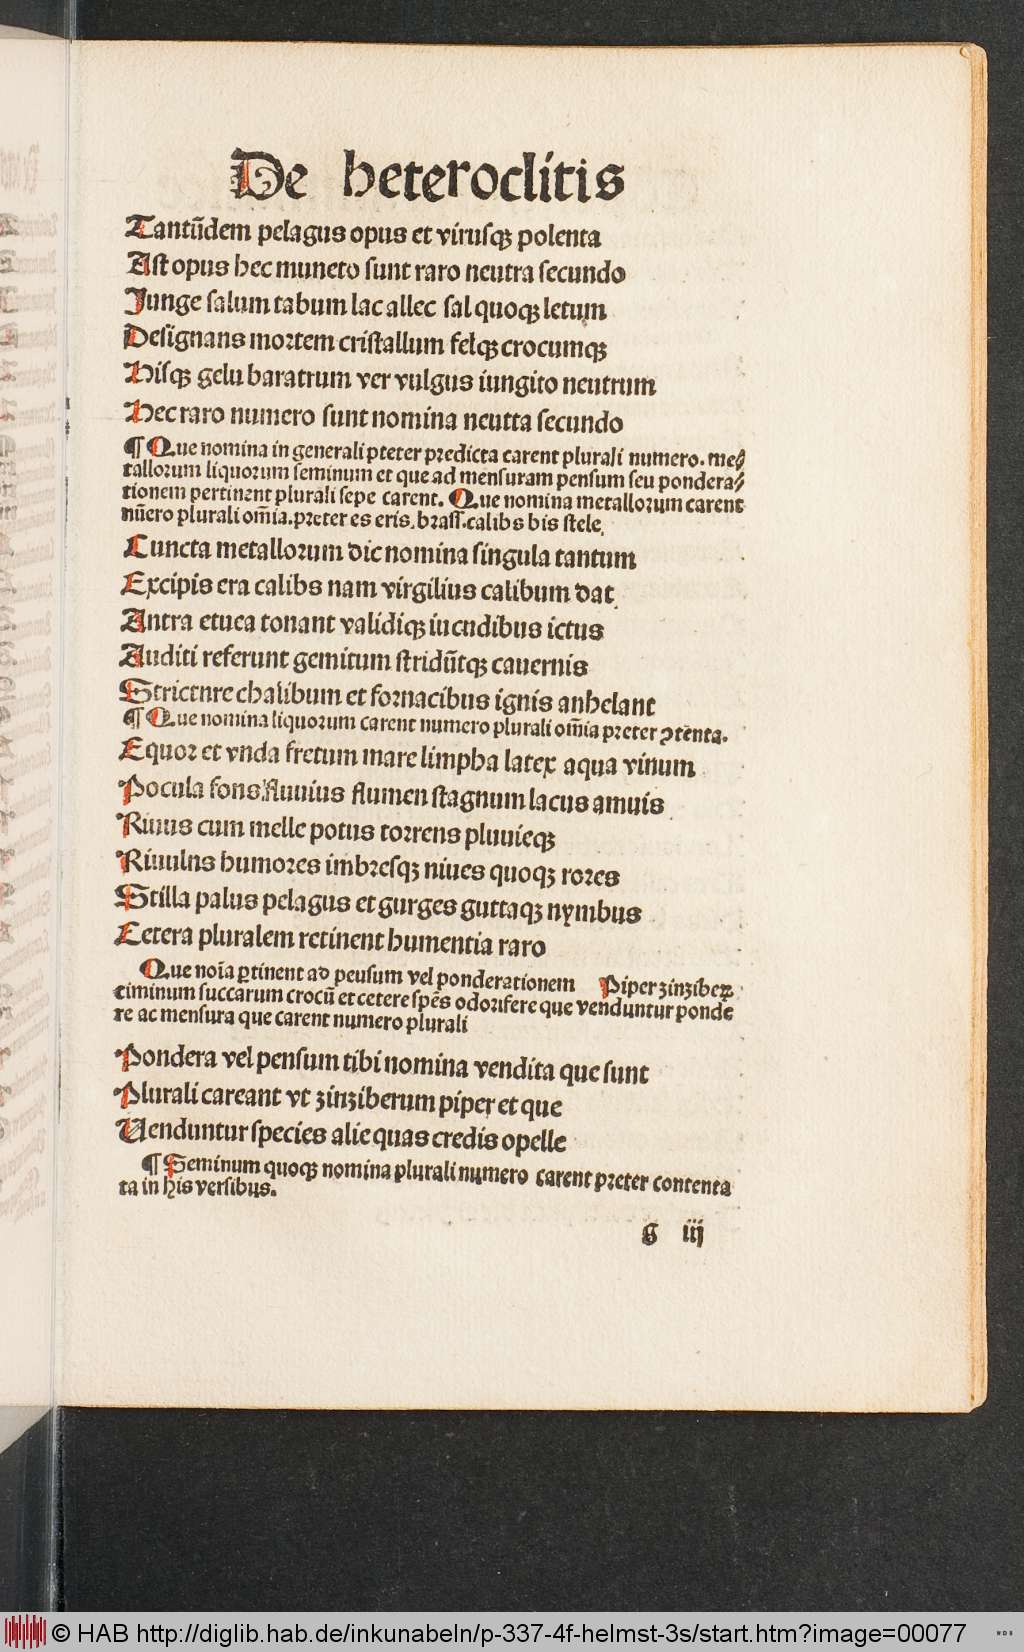 De heteroclitis
Tantūdem pelagus opus et virusqꝫ polenta
Ast opus hec muneto sunt raro neutra secundo
Junge salum tabum lac allec sal quoqꝫ letum
Designans mortem cristallum felqꝫ crocumqꝫ
Hisqꝫ gelu baratrum ver vulgus iungito neutrum
Hec raro numero sunt nomina neutta secundo
¶ Que nomina in generali pteter predicta carent plurali numero. me⸗
tallorum liquorum seminum et que ad mensuram pensum seu pondera⸗
tionem pertinent plurali sepe carent. Que nomina metallorum carent
nūero plurali om̄ia. preter es eris. brass. calibs bis stele.
Cuncta metallorum dic nomina singula tantum
Excipis era calibs nam virgilius calibum dat
Antra etuea tonant validiqꝫ iucudibus ictus
Auditi referunt gemitum stridūtqꝫ cauernis
Strictnre chalibum et fornacibus ignis anhelant
¶ Que nomina liquorum carent numero plurali om̄ia preter ꝯtēnta.
Equor et vnda fretum mare limpha latex aqua vinum
Pocula fons fluuius flumen stagnum lacus amuis
Riuus cum melle potus torrens pluuieqꝫ
Riuulns humores imbresqꝫ niues quoqꝫ rores
Stilla palus pelagus et gurges guttaqꝫ nymbus
Cetera pluralem retinent humentia raro
Que noīa ꝑtinent ad peusum vel ponderationem Piper zinziber
timinum succarum crocū et cetere spēs odorifere que venduntur ponde
re ac mensura que carent numero plurali
Pondera vel pensum tibi nomina vendita que sunt
Plurali careant vt zinziberum piper et que
Uenduntur species alie quas credis opelle
¶ Seminum quoqꝫ nomina plurali numero carent preter contenta
ta in his versibus.
g iii
© HAB http://diglib.hab.de/inkunabeln/p-337-4f-helmst-3s/start.htm?image=00077